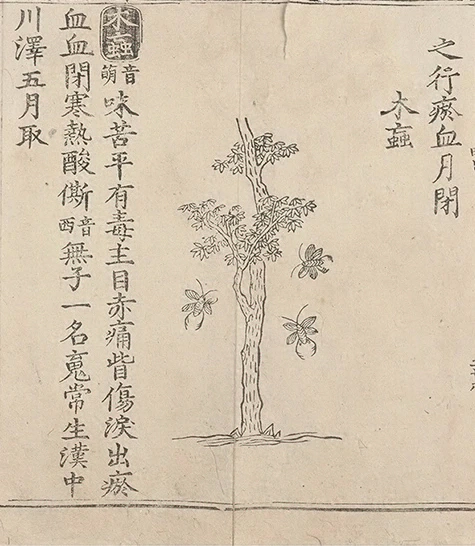 之行瘀血月閉
木蝱
木蝱音萌味苦平有毒主目赤痛眥傷淚出瘀
血血閉寒熱酸㒋音西無子一名䰟常生漢中
川澤五月取